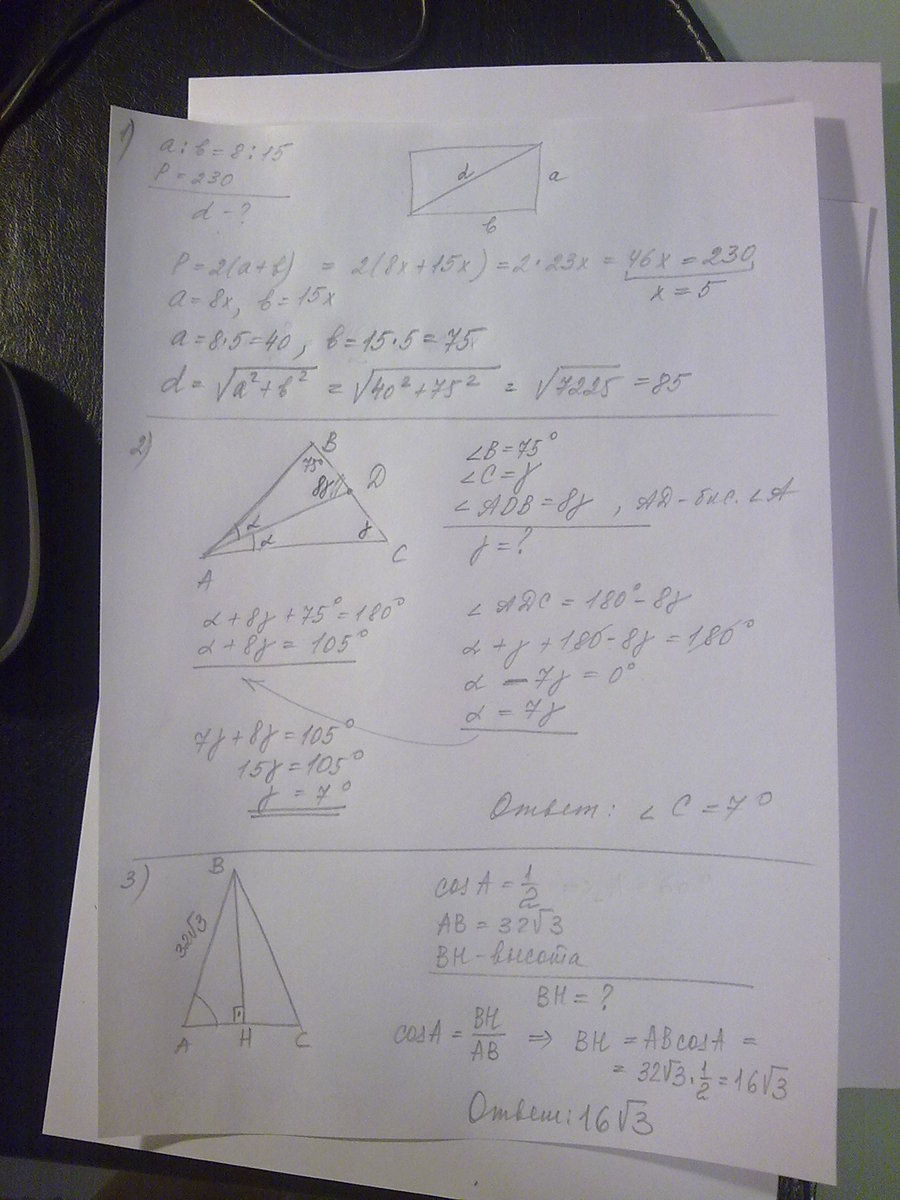 1)
a : b = 8 : 15
P = 230
d - ?
d
a
b
P = 2(a+b) = 2(8x+15x) = 2·23x = 46x = 230
x = 5
a = 8x, b = 15x
a = 8·5 = 40, b = 15·5 = 75
d = √(a²+b²) = √(40²+75²) = √7225 = 85
2)
B
75°
8γ
D
α
α
γ
A
C
∠B = 75°
∠C = γ
∠ADB = 8γ, AD - бис. ∠A
γ = ?
α + 8γ + 75° = 180°
α + 8γ = 105°
∠ADC = 180° - 8γ
α + γ + 180 - 8γ = 180°
α - 7γ = 0°
α = 7γ
7γ + 8γ = 105°
15γ = 105°
γ = 7°
Ответ: ∠C = 7°
3)
B
32√3
A
H
C
cosA = 1/2
AB = 32√3
BH - высота
BH = ?
cosA = BH/AB ⇒ BH = ABcosA =
= 32√3·1/2 = 16√3
Ответ: 16√3